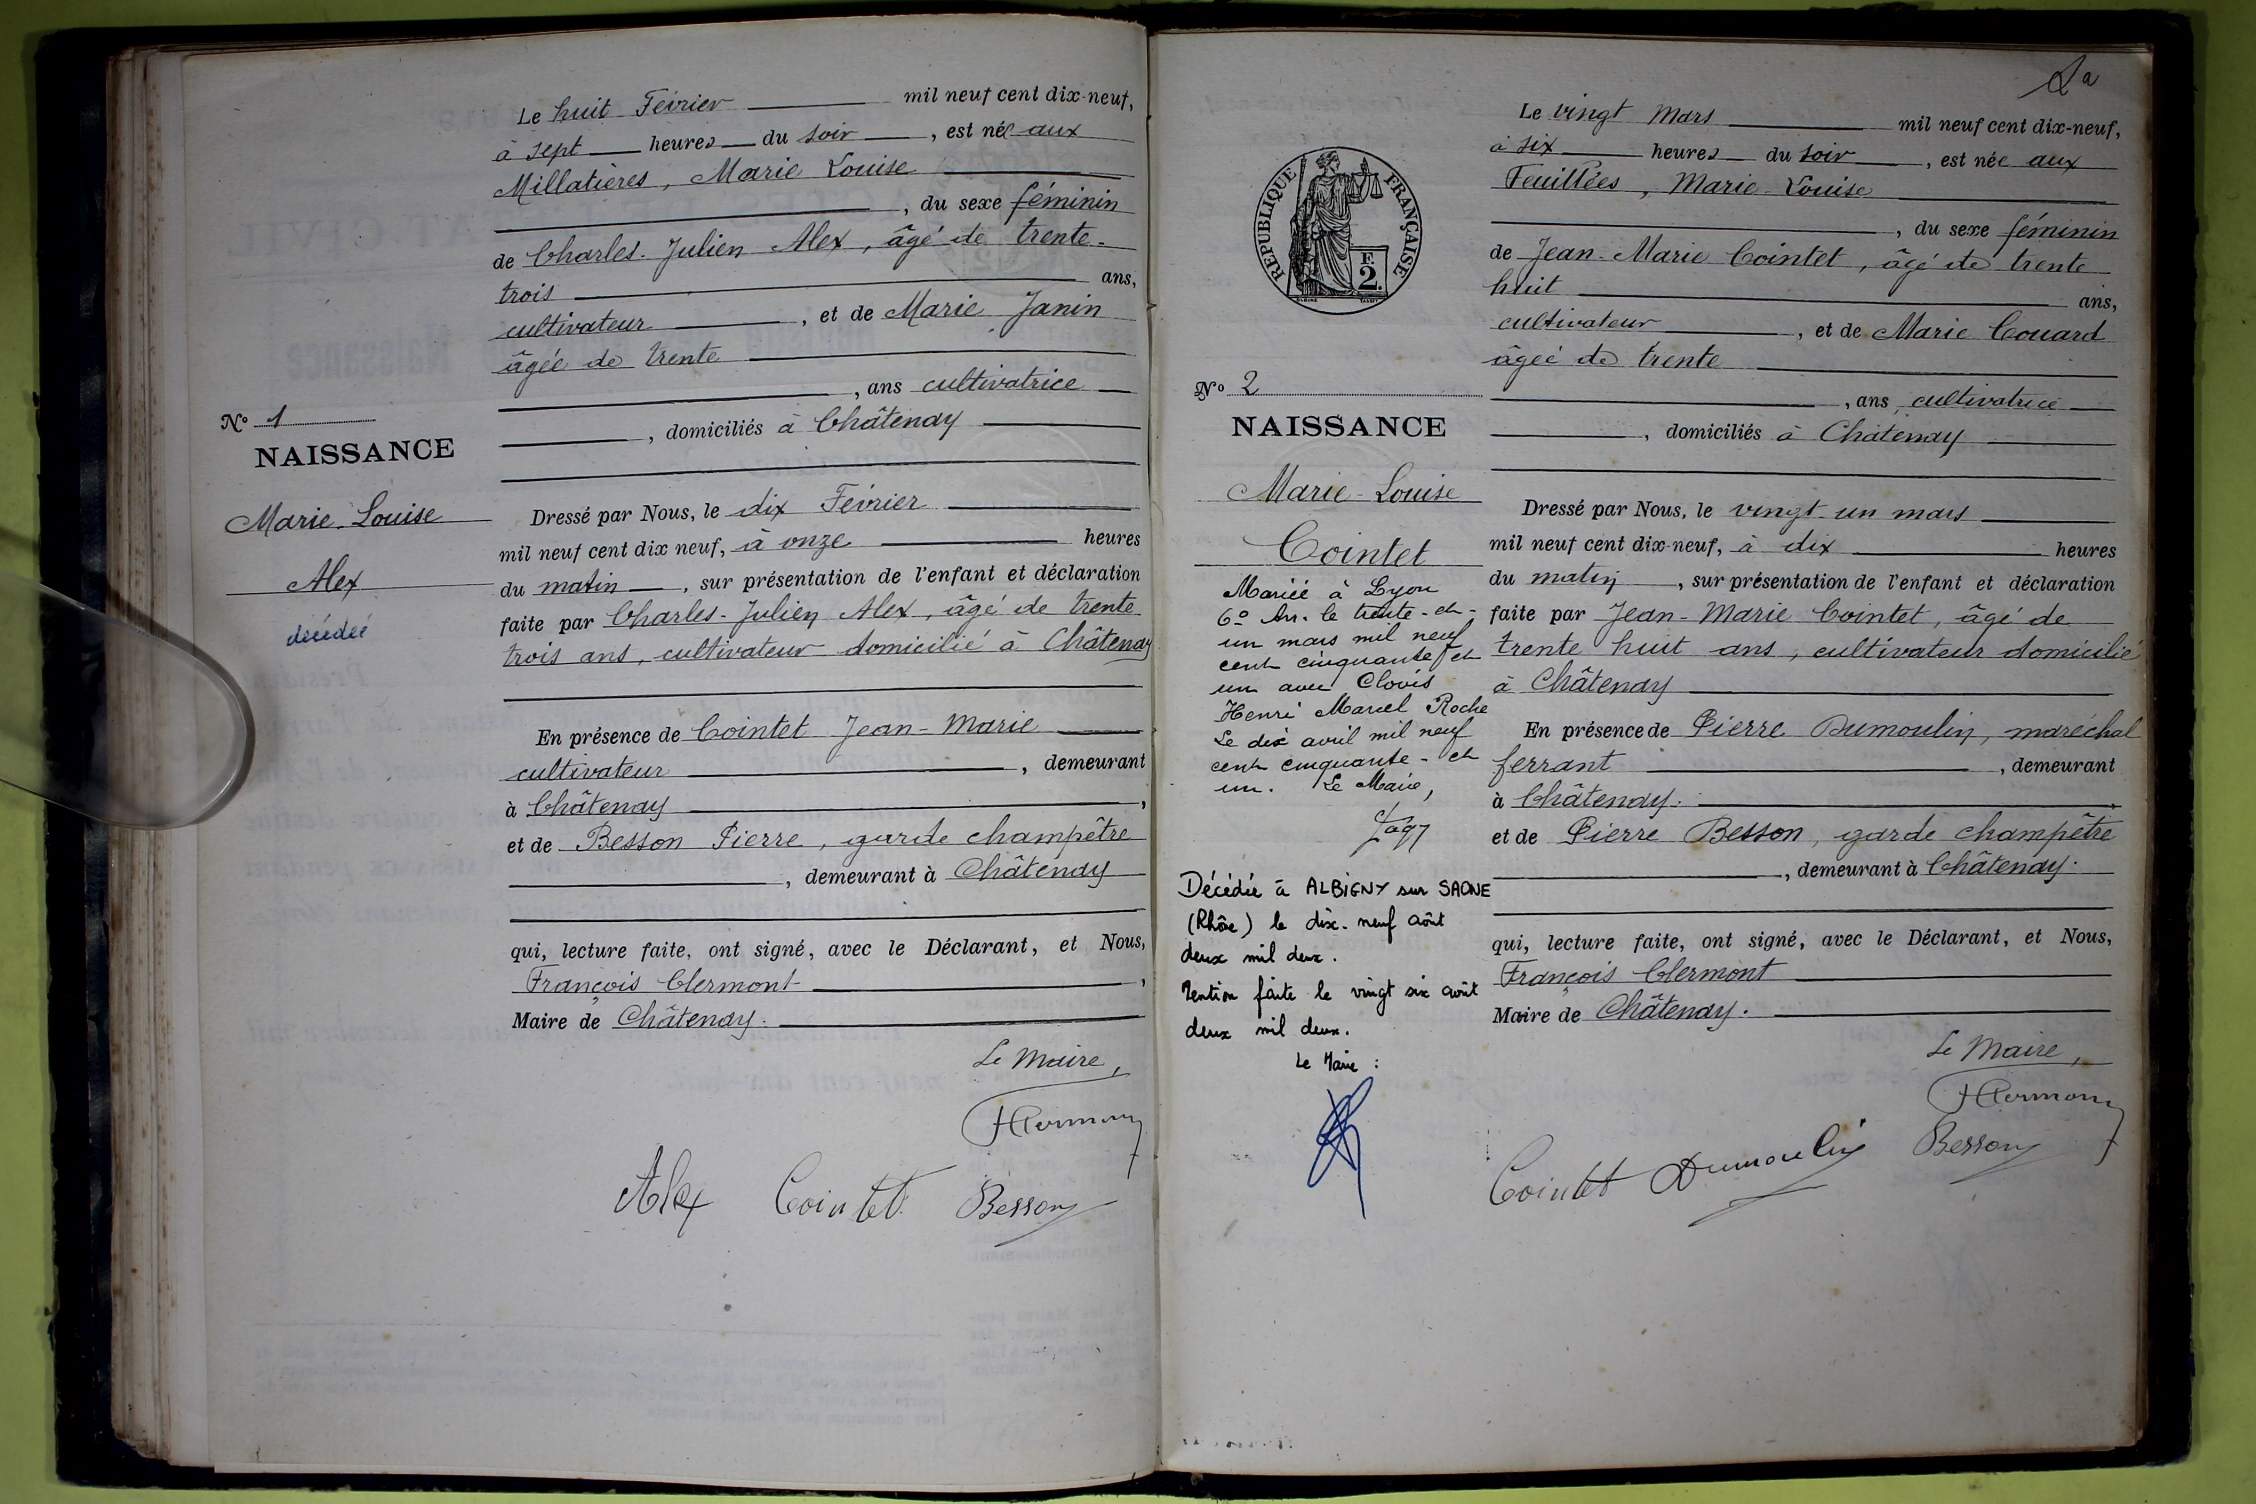 Le huit Février mil neuf cent dix-neuf,
à sept heures du soir, est née aux
Millatières, Marie Louise
, du sexe féminin
de Charles-Julien Alex, âgé de trente-
trois ans,
cultivateur, et de Marie Janin
âgée de trente
, ans cultivatrice
, domiciliés à Châtenay
No 1
NAISSANCE
Marie-Louise
Alex
décédée
Dressé par Nous, le dix Février
mil neuf cent dix neuf, à onze heures
du matin, sur présentation de l'enfant et déclaration
faite par Charles-Julien Alex, âgé de trente
trois ans, cultivateur domicilié à Châtenay
En présence de Cointet Jean-Marie
cultivateur, demeurant
à Châtenay,
et de Besson Pierre, garde champêtre
, demeurant à Châtenay
qui, lecture faite, ont signé, avec le Déclarant, et Nous,
François Clermont,
Maire de Châtenay.
Le Maire,
FClermont
Alex Cointet Besson
Le vingt Mars mil neuf cent dix-neuf,
à six heures du soir, est née aux
Feuillées, Marie-Louise
, du sexe féminin
de Jean-Marie Cointet, âgé de trente
huit ans,
cultivateur, et de Marie Couard
âgée de trente
, ans, cultivatrice
, domiciliés à Châtenay
RÉPUBLIQUE FRANÇAISE
F.
2.
No 2
NAISSANCE
Marie-Louise
Cointet
Mariée à Lyon
6o Arr. le trente-et-
un mars mil neuf
cent cinquante et
un avec Clovis
Henri Marcel Roche
Le dix avril mil neuf
cent cinquante-et
un. Le Maire,
Décédée à ALBIGNY sur SAONE
(Rhône) le dix-neuf août
deux mil deux.
Mention faite le vingt six août
deux mil deux.
Le Maire :
Dressé par Nous, le vingt-un mars
mil neuf cent dix-neuf, à dix heures
du matin, sur présentation de l'enfant et déclaration
faite par Jean-Marie Cointet, âgé de
trente huit ans, cultivateur domicilié
à Châtenay
En présence de Pierre Dumoulin, maréchal
ferrant, demeurant
à Châtenay.
et de Pierre Besson, garde champêtre
, demeurant à Châtenay.
qui, lecture faite, ont signé, avec le Déclarant, et Nous,
François Clermont
Maire de Châtenay.
Le Maire,
FClermont
Cointet Dumoulin Besson